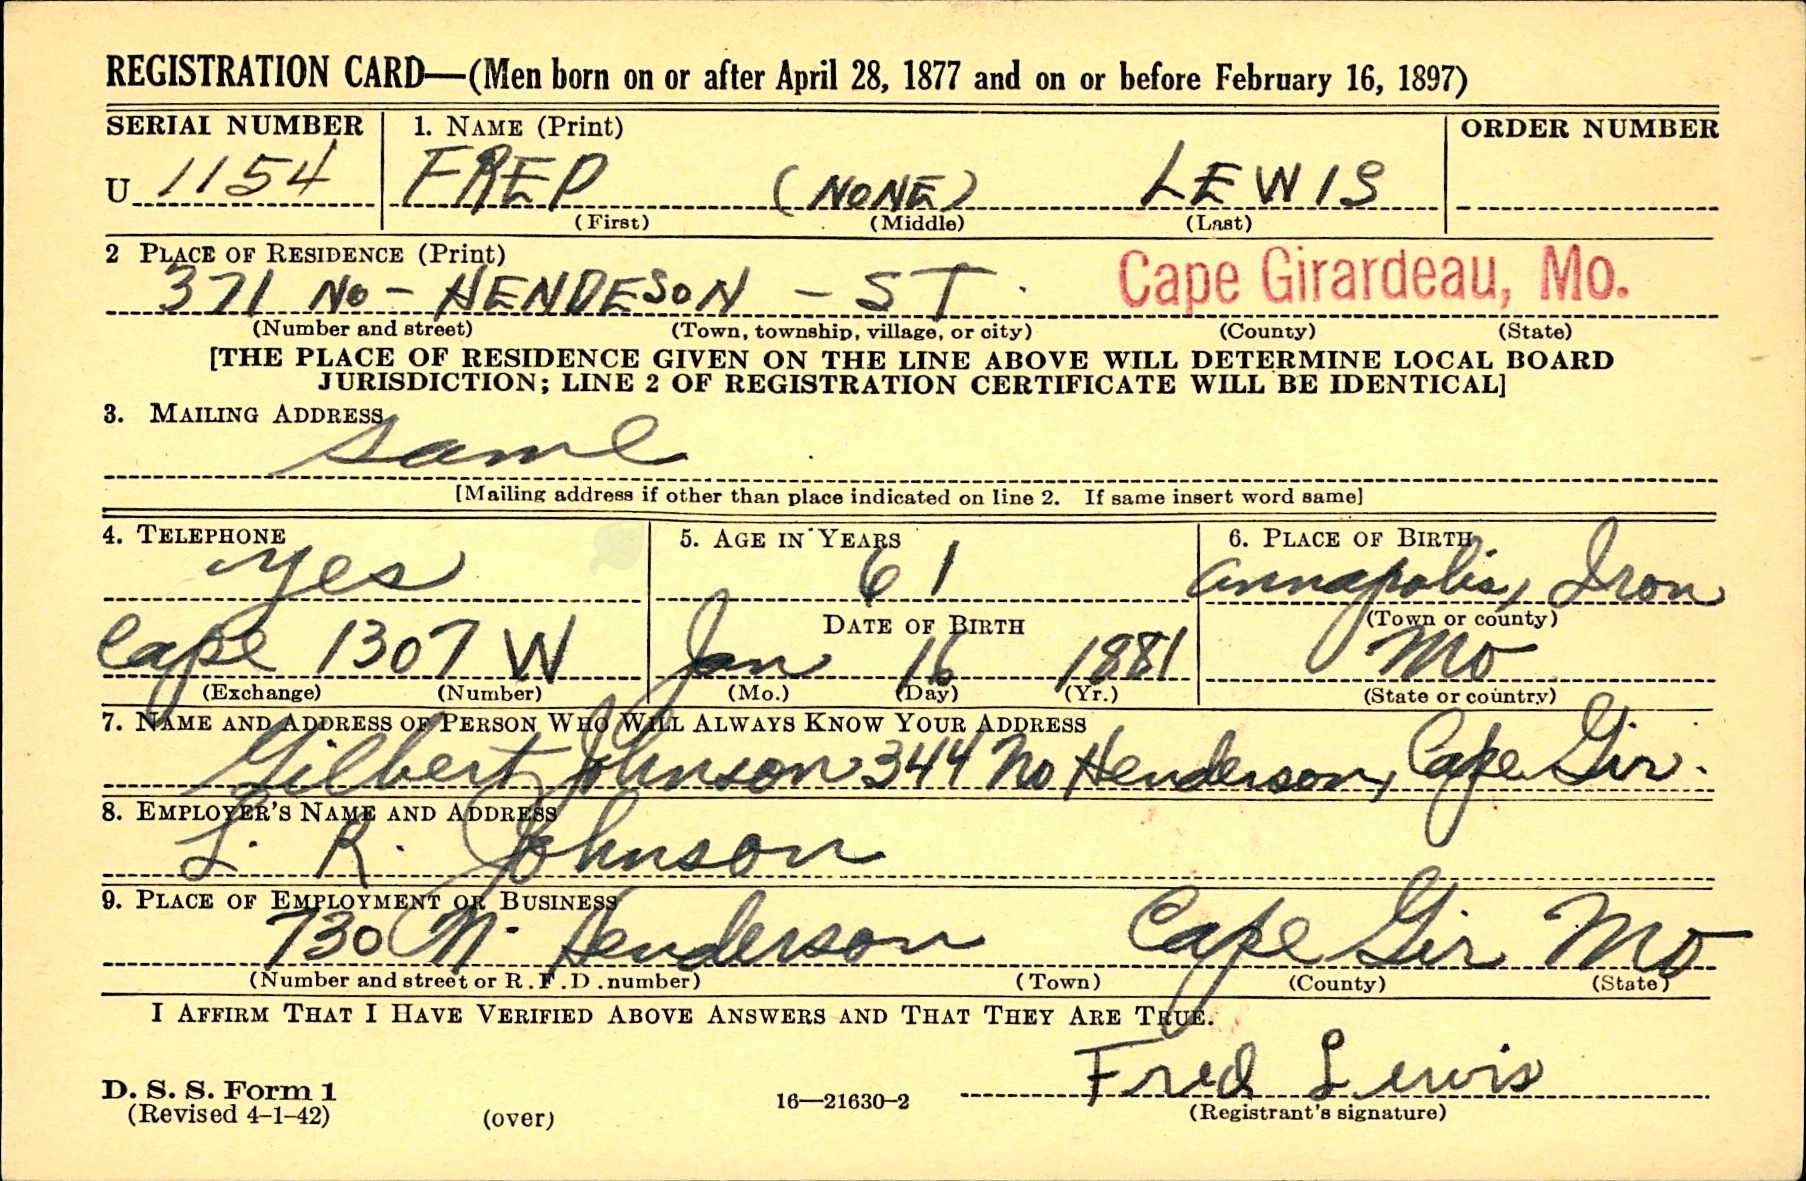 REGISTRATION CARD—(Men born on or after April 28, 1877 and on or before February 16, 1897)
SERIAL NUMBER 1. NAME (Print) ORDER NUMBER
U 1154 FRED (NONE) LEWIS
(First) (Middle) (Last)
2 PLACE OF RESIDENCE (Print)
371 No - HENDESON - ST. Cape Girardeau, Mo.
(Number and street) (Town, township, village, or city) (County) (State)
[THE PLACE OF RESIDENCE GIVEN ON THE LINE ABOVE WILL DETERMINE LOCAL BOARD
JURISDICTION; LINE 2 OF REGISTRATION CERTIFICATE WILL BE IDENTICAL]
3. MAILING ADDRESS
Same
[Mailing address if other than place indicated on line 2. If same insert word same]
4. TELEPHONE 5. AGE IN YEARS 6. PLACE OF BIRTH
yes 61 Annapolis, Iron
DATE OF BIRTH (Town or county)
Cape 1307 W Jan 16 1881 Mo
(Exchange) (Number) (Mo.) (Day) (Yr.) (State or country)
7. NAME AND ADDRESS OF PERSON WHO WILL ALWAYS KNOW YOUR ADDRESS
Gilbert Johnson 344 No Henderson, Cape Gir.
8. EMPLOYER'S NAME AND ADDRESS
L. R. Johnson
9. PLACE OF EMPLOYMENT OR BUSINESS
730 N. Henderson Cape Gir Mo
(Number and street or R.F.D. number) (Town) (County) (State)
I AFFIRM THAT I HAVE VERIFIED ABOVE ANSWERS AND THAT THEY ARE TRUE.
Fred Lewis
D. S. S. Form 1
(Revised 4-1-42) (over) 16—21630-2 (Registrant's signature)